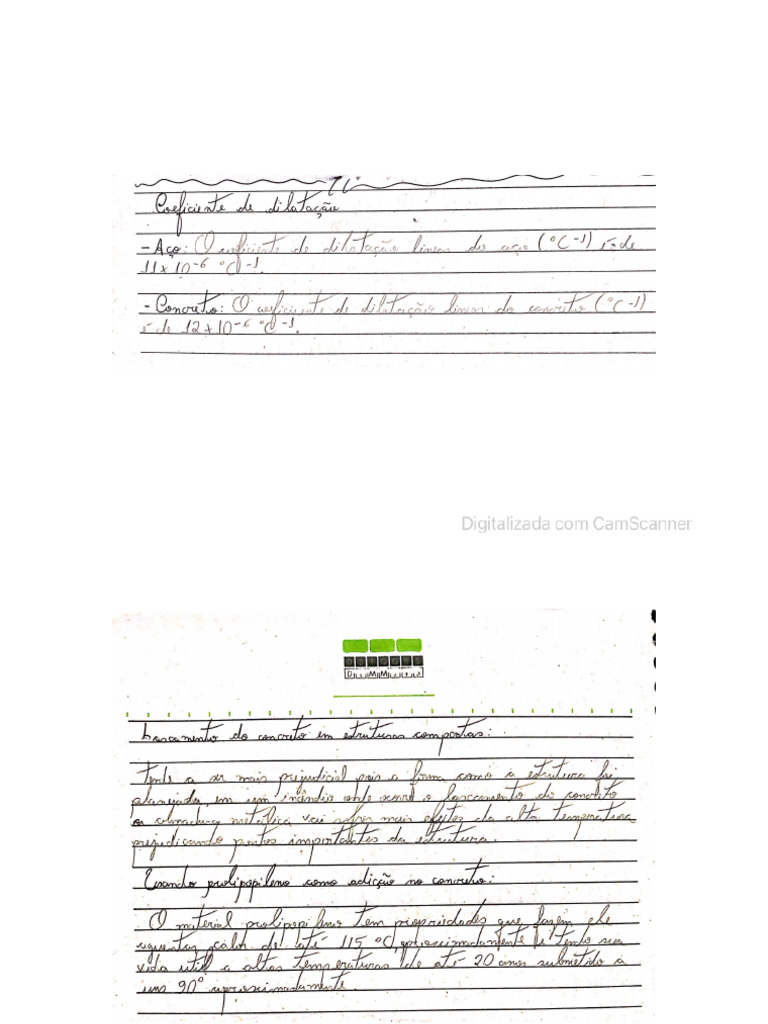 Coeficiente de dilatação
- Aço: O coeficiente de dilatação linear do aço (°C-1) é de
11x10-6 °C-1.
- Concreto: O coeficiente de dilatação linear do concreto (°C-1)
é de 12x10-6 °C-1.
Digitalizada com CamScanner
Lascamento do concreto em estruturas compostas:
Tende a ser mais prejudicial pois a forma como a estrutura foi
planejada, em um incêndio onde ocorre o lascamento do concreto
a armadura metálica vai sofrer mais efeitos da alta temperatura
prejudicando pontos importantes da estrutura.
Usando prolipopileno como adição no concreto:
O material prolipopileno tem propriedades que fazem ele
aguentar calor de até 115 °C aproximadamente tendo sua
vida útil a altas temperaturas de até 20 anos submetido a
uns 90° aproximadamente.